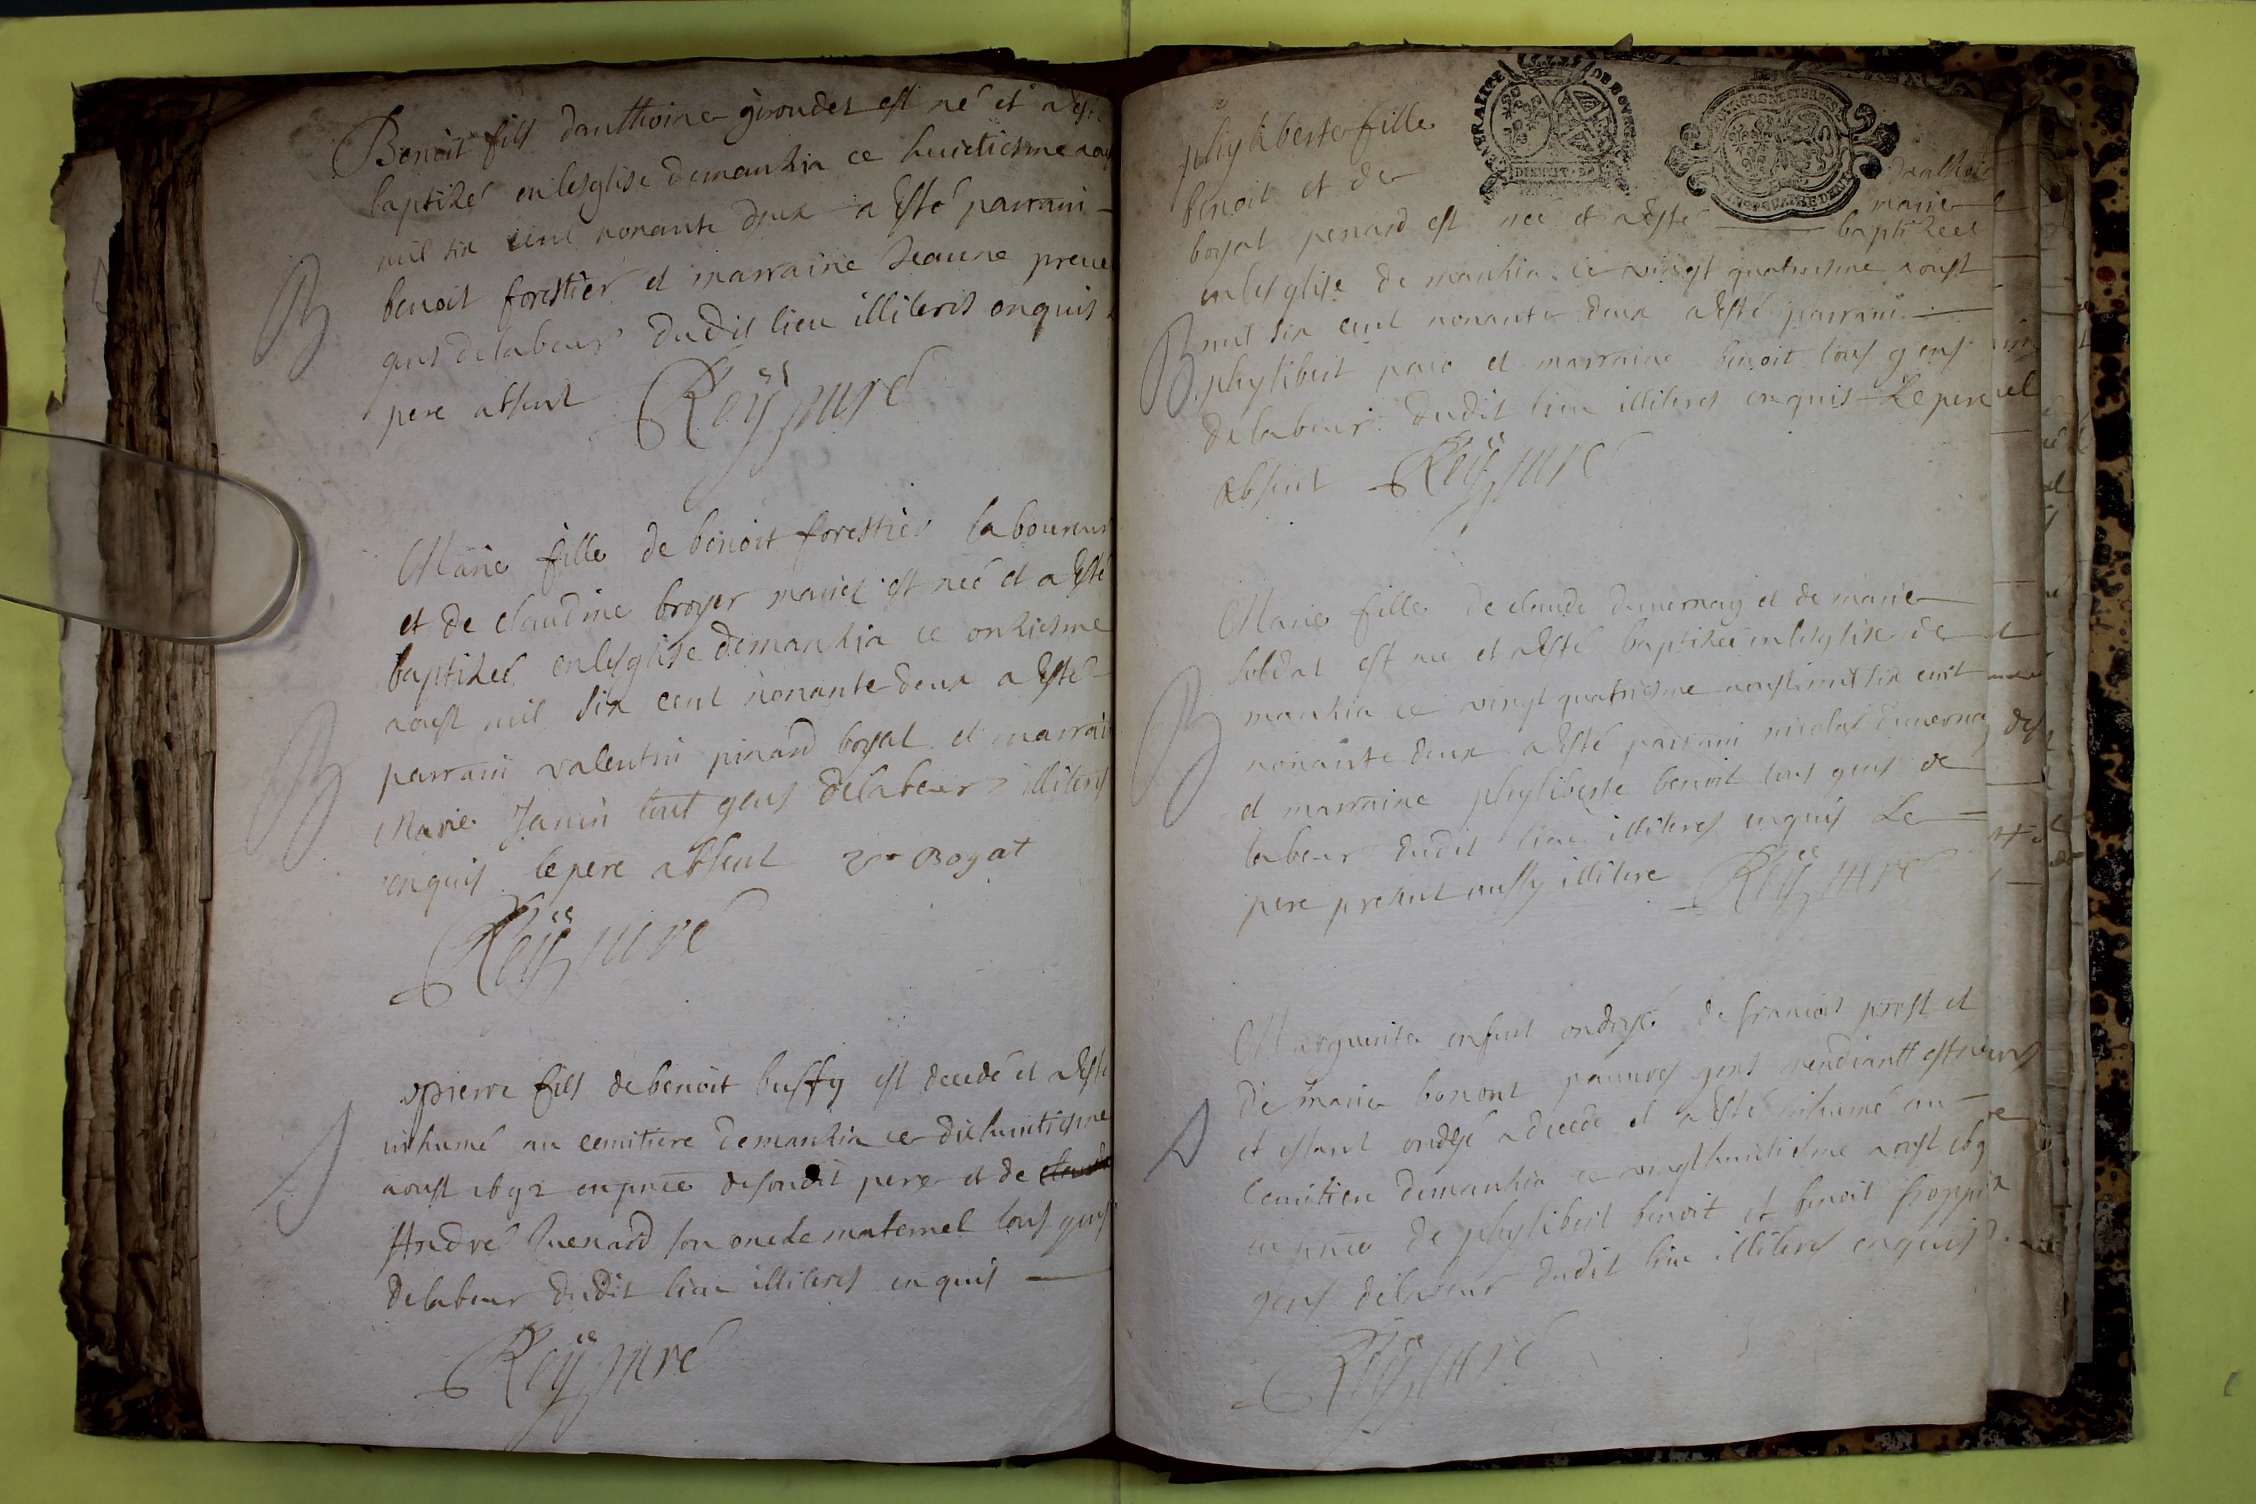 Benoit fils danthoine giroudet est né et a esté
baptizé en lesglise demanzia ce huictiesme aoust
mil six cent nonante deux a esté parrain
benoit forestier et marraine Jeanne
gens delabeur dudit lieu illiterés enquis
pere absent Reÿ curé
B
Marie fille de benoit forestier laboureur
et de claudine broyer mariez est néé et a esté
baptizéé en lesglise demanzia ce onziesme
aoust mil six cent nonante deux a esté
parrain valentin pinard boyat et marraine
Marie Janin tout gens delabeur illiterés
enquis le pere absent V Boyat
Reÿ curé
B
pierre fils de benoit buffy est decedé et a esté
inhumé au cemitiere demanzia ce dixhuictiesme
aoust 1692 en pnce desondit pere et de
André Juenard son oncle maternel tous gens
delabeur dudit lieu illiterés enquis
Reÿ curé
phyliberte fille
benoit et de marie
GENERALITE DE BOVRGOGNE
boyat penard est néé et a esté baptizéé
en lesglise de manzia ce vingt quatriesme aoust
mil six cent nonante deux a esté parrain
phylibert et marraine benoit tous gens
delabeur dudit lieu illiterés enquis Le pere
absent Reÿ curé
B
Marie fille de claude duvernay et de marie
soldat est néé et a esté baptizéé en lesglise de
manzia ce vingt quatriesme aoust mil six cent
nonante deux a esté parrain nicolas duvernay
et marraine phyliberte benoit tous gens de
labeur dudit lieu illiterés enquis Le
pere present aussy illiteré Reÿ curé
B
Marguerite enfant ondoyé de francois prost et
de marie bonont pauvres gens mendiantt
et estant ondoyé a decedé et a esté inhumé au
cemitiere demanzia ce vingthuictiesme aoust
en pnce de phylibert benoit et benoit
gens delabeur dudit lieu illiterés enquis
Reÿ curé